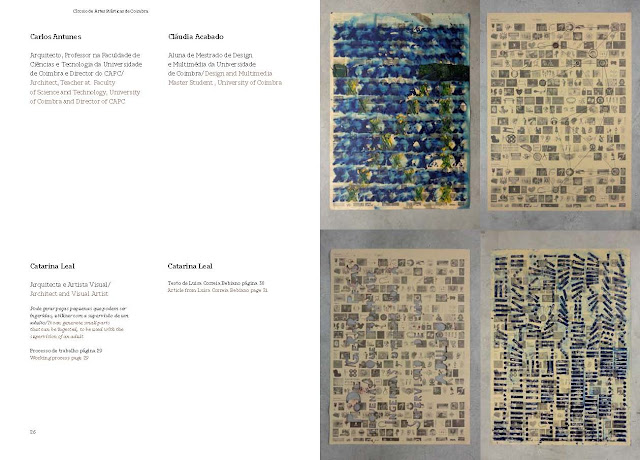 Círculo de Artes Plásticas de Coimbra
Carlos Antunes
Arquitecto, Professor na Faculdade de
Ciências e Tecnologia da Universidade
de Coimbra e Director do CAPC/
Architect, Teacher at Faculty
of Science and Technology, University
of Coimbra and Director of CAPC
Cláudia Acabado
Aluna de Mestrado de Design
e Multimédia da Universidade
de Coimbra/Design and Multimedia
Master Student , University of Coimbra
Catarina Leal
Arquitecta e Artista Visual/
Architect and Visual Artist
Pode gerar peças pequenas que podem ser
ingeridas, utilizar com a supervisão de um
adulto/It can generate small parts
that can be ingested, to be used with the
supervision of an adult
Processo de trabalho página 29
Working process page 29
Catarina Leal
Texto de Luísa Correia Bebiano página 30
Article from Luísa Correia Bebiano page 31
26